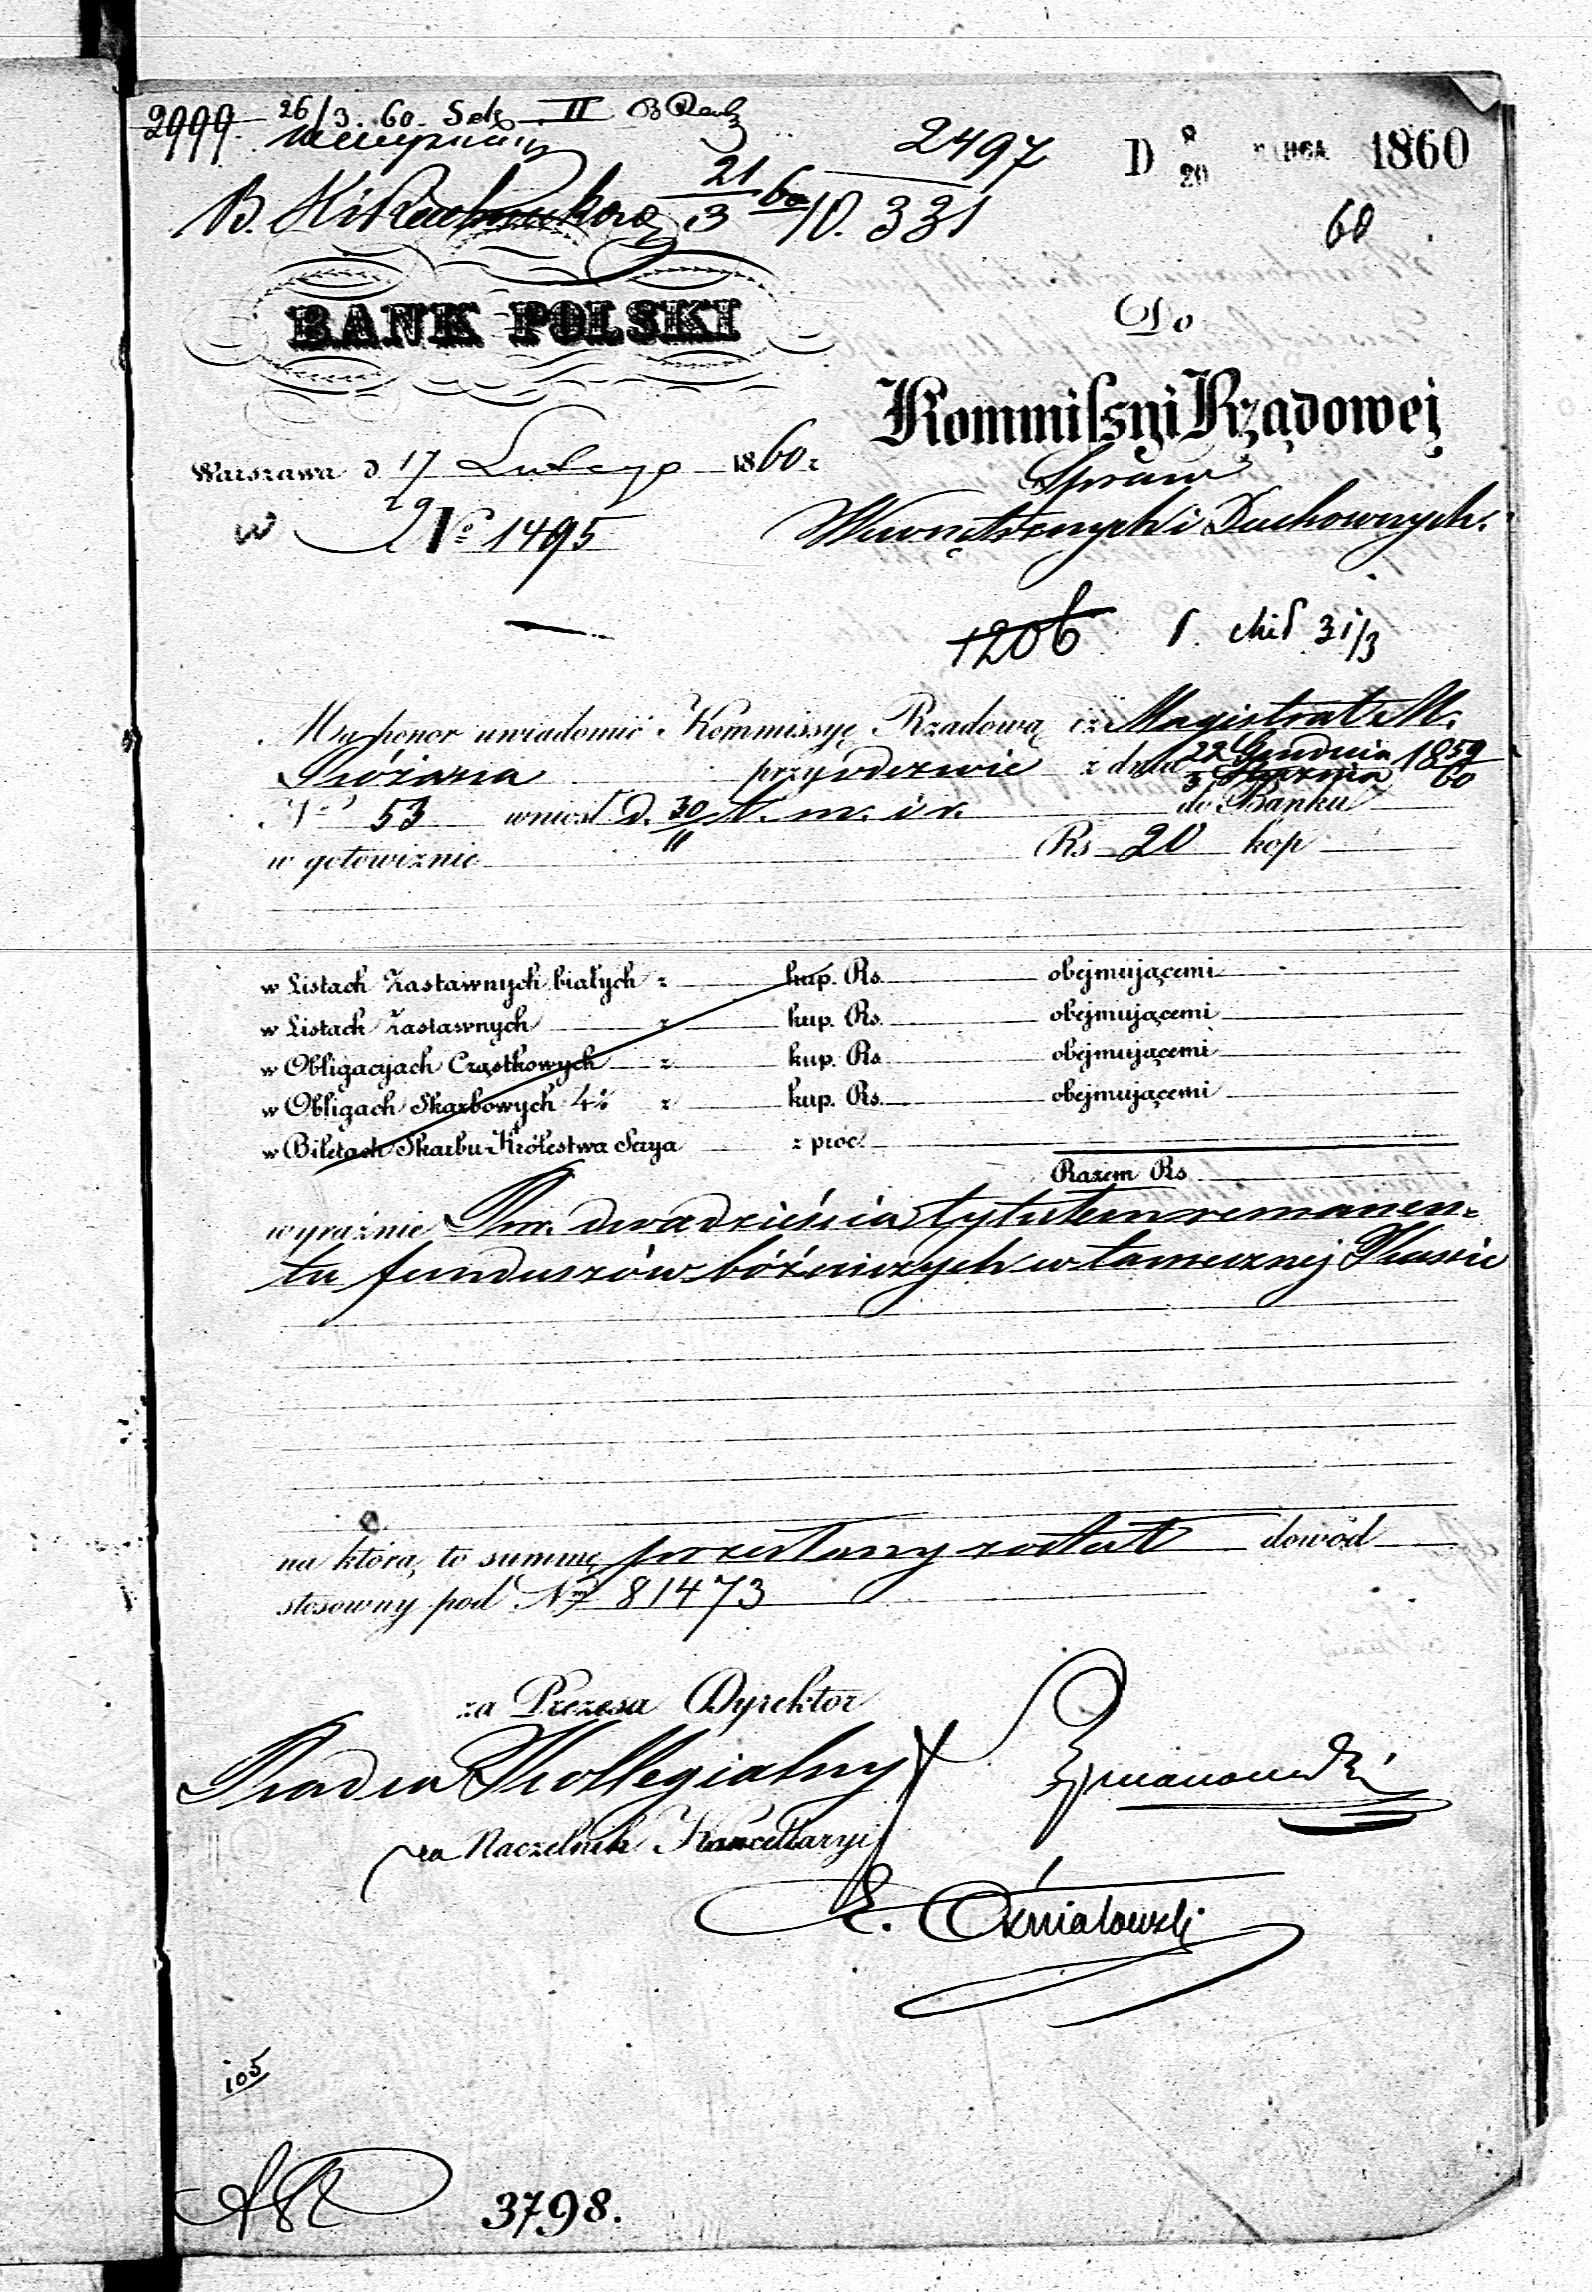 2999. 26/3. 60. Sek. II
2497
D 8/20 MARCA 1860
B. 21/3 60 10.331
60
BANK POLSKI
Do
Kommissyi Rządowej
Warszawa d 17/29 Lutego 1860 r
Spraw
w No 1495
Wewnętrznych i Duchownych.
1206 31/3
Ma honor uwiadomić Kommissyę Rządową iż Magistrat M.
Różana przy odezwie z dnia 22 Grudnia/3 Stycznia 1859/60
No 53 wniosł d. t. m. i r. do Banku
w gotowiznie Rs 20 kop
w Listach Zastawnych białych z kup. Rs. obejmującemi
w Listach Zastawnych z kup. Rs. obejmującemi
w Obligacyjach Cząstkowych z kup. Rs obejmującemi
w Obligach Skarbowych 4% z kup. Rs. obejmującemi
w Biletach Skarbu Królestwa Serya z proc.
Razem Rs
wyraźnie Rsr. dwadzieścia tytułem remanen=
tu funduszów bóżniczych w tamecznej Kassie
na którą to summę przesłany został dowód
stosowny pod Nm 81473
za Prezesa Dyrektor
Radca Kollegialny
za Naczelnik Kancellaryi
105
3798.